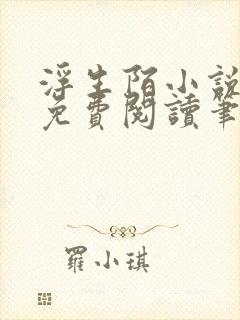 浮生陌小說
免費閱讀筆
羅小琪